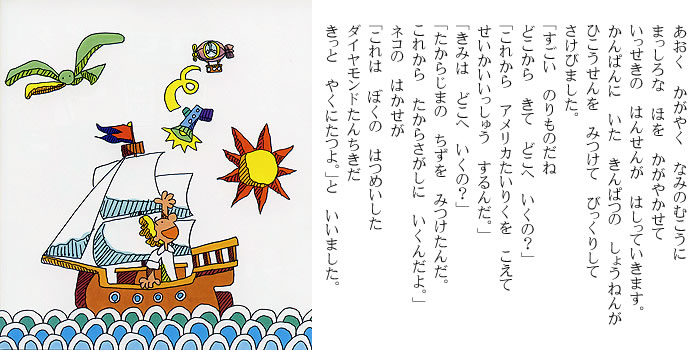 あおく　かがやく　なみのむこうに
まっしろな　ほを　かがやかせて
いっせきの　はんせんが　はしっていきます。
かんぱんに　いた　きんぱつの　しょうねんが
ひこうせんを　みつけて　びっくりして
さけびました。
「すごい　のりものだね
どこから　きて　どこへ　いくの？」
「これから　アメリカたいりくを　こえて
せいかいいっしゅう　するんだ。」
「きみは　どこへ　いくの？」
「たからじまの　ちずを　みつけたんだ。
これから　たからさがしに　いくんだよ。」
ネコの　はかせが
「これは　ぼくの　はつめいした
ダイヤモンドたんちきだ
きっと　やくにたつよ。」と　いいました。